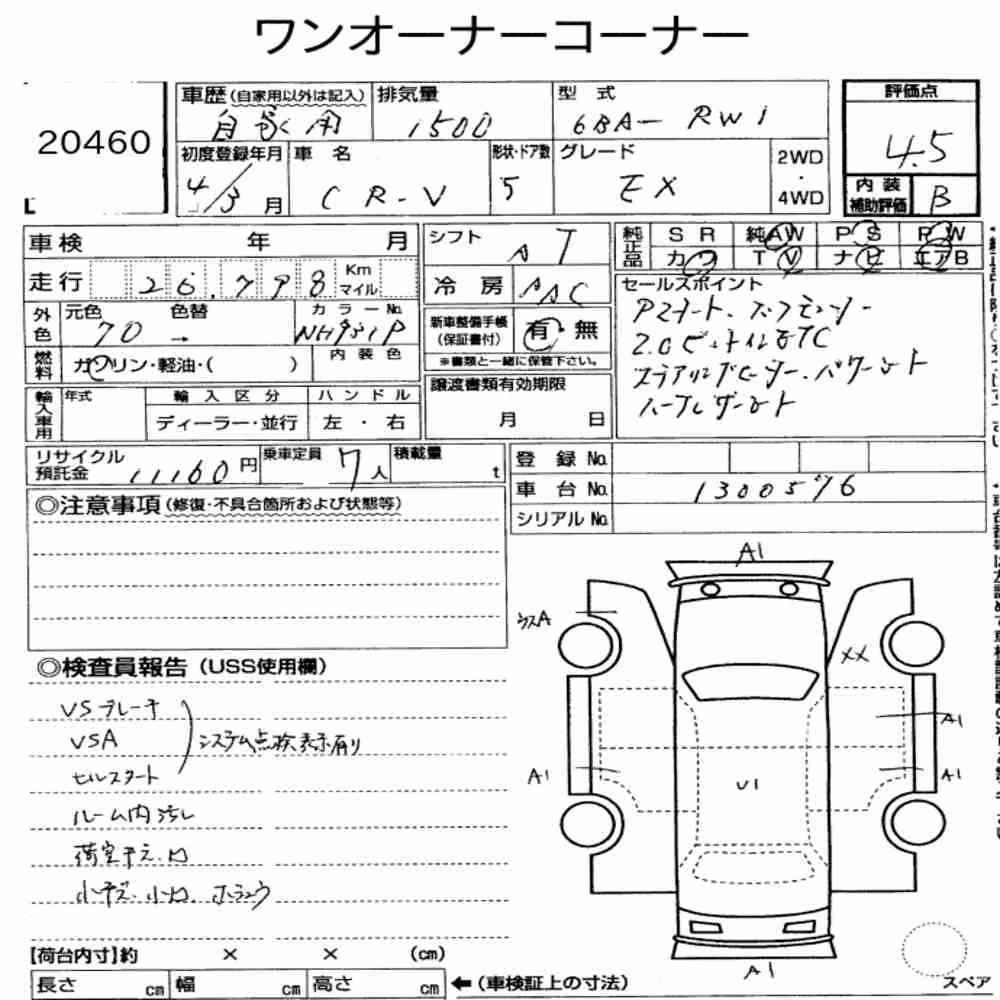 ワンオーナーコーナー
20460
車歴 (自家用以外は記入) 排気量 型 式 評価点
自家用 1500 6BA- RW1 4.5
初度登録年月 車 名 形状・ドア数 グレード 2WD ・ 4WD
4/3月 CR-V 5 EX
内 装 補助評価 B
車 検 年 月
走 行 26,798 Km マイル
外色 元色 70 → 色替 カラーNo. NH731P
燃料 ガソリン・軽油・( ) 内 装 色
輸入車用 年式 輸 入 区 分 ハ ン ド ル
ディーラー・並行 左 ・ 右
シフト AT
冷 房 AAC
新車整備手帳 (保証書付) 有 無
※書類と一緒に保管下さい。
譲渡書類有効期限
月 日
純正品 S R 純AW P S P W
カワ T V ナビ エアB
セールスポイント
Pスタート
2.0 ETC
パワーシート
ハーフレザーシート
リサイクル預託金 11160円 乗車定員 7人 積載量 t
登 録 No.
車 台 No. 1300576
シリアル No.
◎注意事項 (修復・不具合箇所および状態等)
◎検査員報告 (USS使用欄)
VSブレーキ
VSA システム点検表示有り
セルスタート
ルーム内汚れ
荷室キズ・凹
小キズ・小凹
A1
ウスA
XX
A1
A1
A1
U1
A1
スペア
【荷台内寸】約 × × (cm)
長さ cm 幅 cm 高さ cm ←(車検証上の寸法)